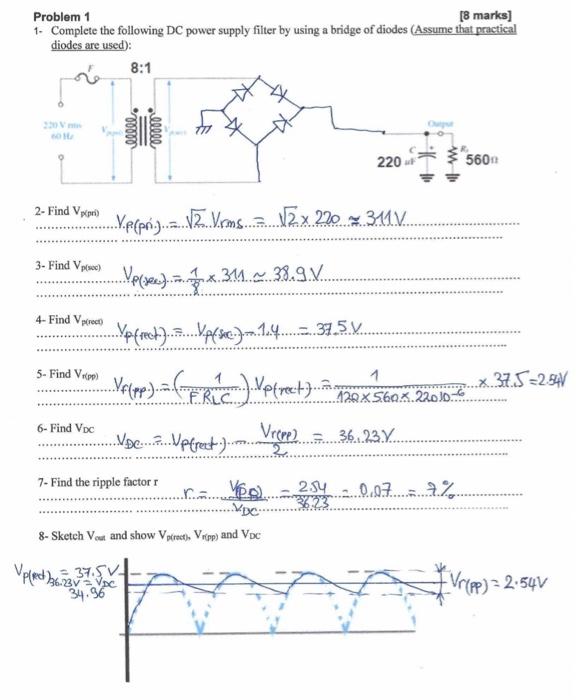 Problem 1 [8 marks]
1- Complete the following DC power supply filter by using a bridge of diodes (Assume that practical
diodes are used):
F 8:1
220 V rms
60 Hz
Vp(pri)
Vp(sec)
Output
C
220 uF
+
RL
560Ω
2- Find Vp(pri) Vp(pri) = √2 Vrms = √2 x 220 ≃ 311V
3- Find Vp(sec) Vp(sec) = 1/8 x 311 ≃ 38.9V
4- Find Vp(rect) Vp(rect) = Vp(sec) - 1.4 = 37.5V
5- Find Vr(pp) Vr(pp) = (1/FRLC) Vp(rect) = 1/120x560x220 10-6 x 37.5 = 2.54V
6- Find VDC VDC = Vp(rect) - Vr(pp)/2 = 36.23V
7- Find the ripple factor r r = V(pp)/VDC = 2.54/36.23 = 0.07 = 7%
8- Sketch Vout and show Vp(rect), Vr(pp) and VDC
Vp(rect) = 37.5V
36.23V = VDC
34.96
Vr(pp) = 2.54V